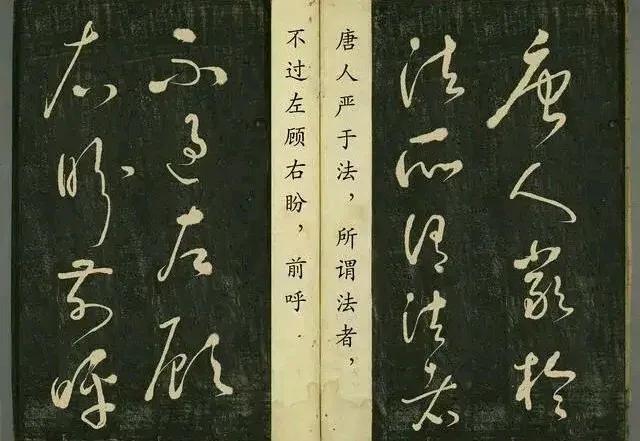 唐人嚴於
法所謂法者
唐人严于法，所谓法者，
不过左顾右盼，前呼
不過左顧
右盼前呼